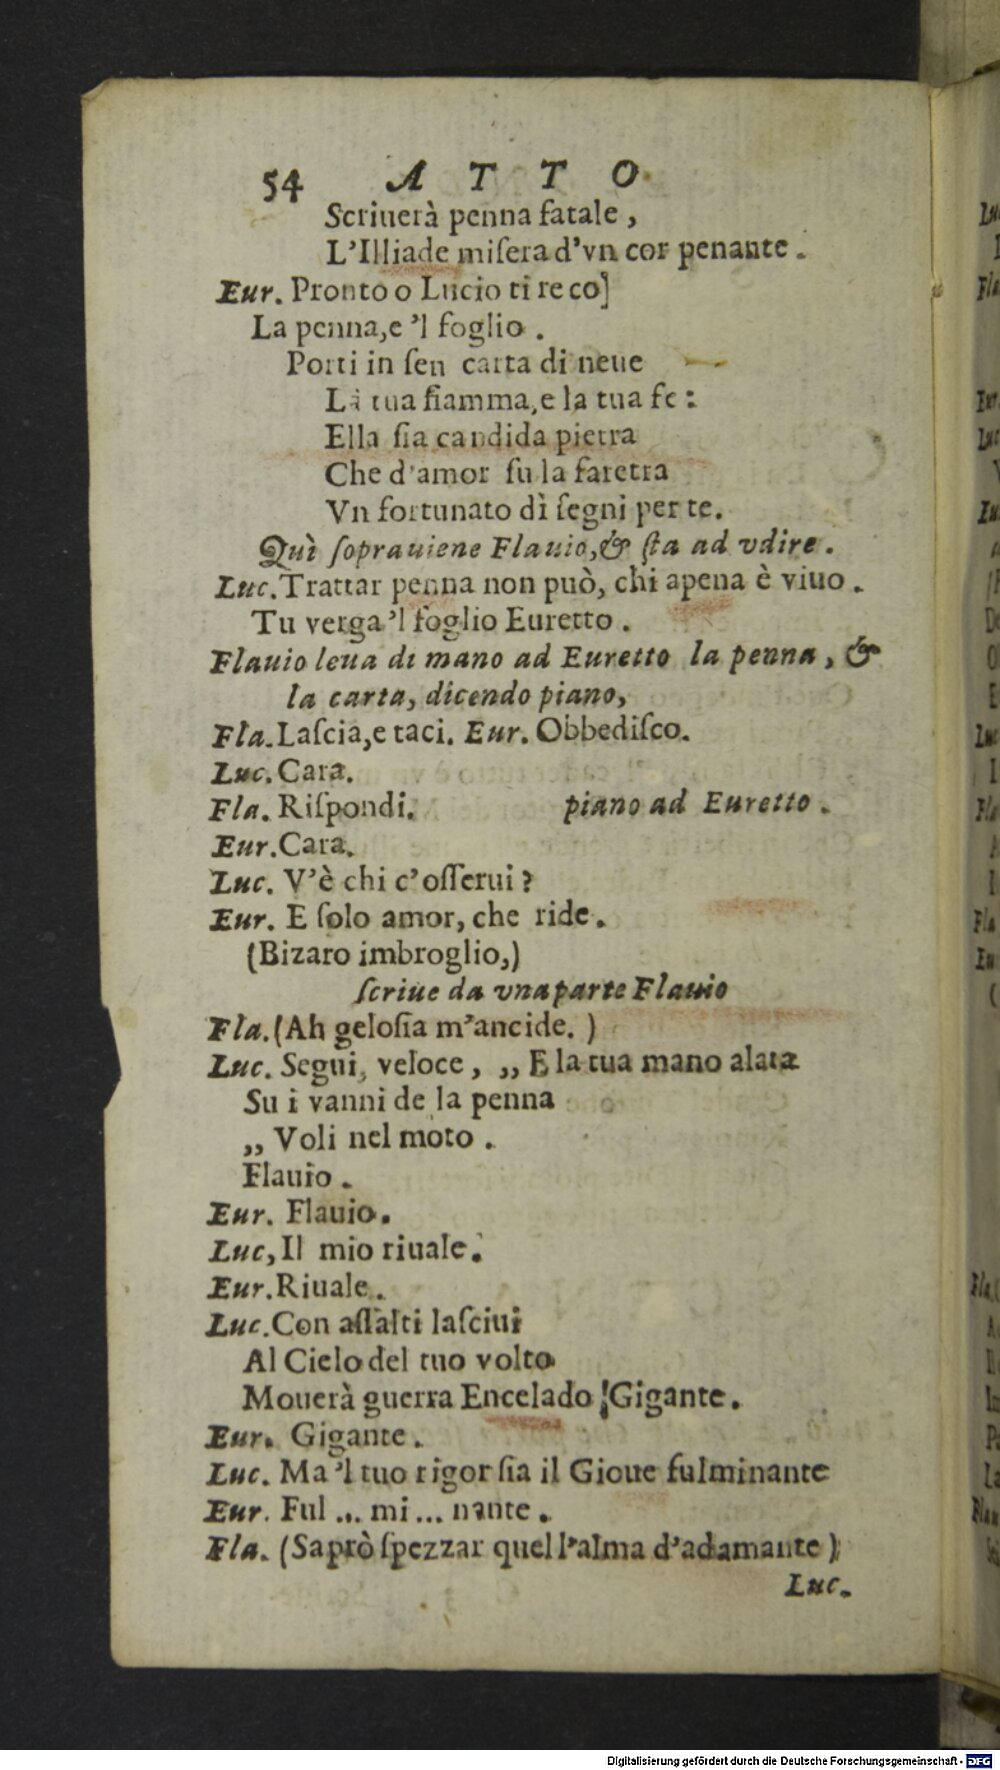 54 ATTO
Scriuerà penna fatale ,
L'Illiade miſera d'vn cor penante .
Eur. Pronto o Lucio ti reco]
La penna,e 'l foglio .
Porti in ſen carta di neue
La tua fiamma,e la tua fe :
Ella ſia candida pietra
Che d'amor ſu la faretra
Vn fortunato dì ſegni per te.
Quì ſoprauiene Flauio,& ſta ad vdire .
Luc. Trattar penna non può, chi apena è viuo .
Tu verga 'l foglio Euretto .
Flauio leua di mano ad Euretto la penna , &
la carta, dicendo piano,
Fla. Laſcia,e taci. Eur. Obbediſco.
Luc. Cara.
Fla. Riſpondi. piano ad Euretto .
Eur. Cara.
Luc. V'è chi c'oſſerui ?
Eur. E ſolo amor, che ride .
(Bizaro imbroglio,)
ſcriue da vna parte Flauio
Fla. (Ah geloſia m'ancide. )
Luc. Segui, veloce , „ E la tua mano alata
Su i vanni de la penna
„ Voli nel moto .
Flauio .
Eur. Flauio.
Luc, Il mio riuale.
Eur. Riuale .
Luc. Con aſſalti laſciui
Al Cielo del tuo volto
Mouerà guerra Encelado !Gigante .
Eur. Gigante .
Luc. Ma 'l tuo rigor ſia il Gioue fulminante
Eur. Ful ... mi ... nante .
Fla. (Saprò ſpezzar quell'alma d'adamante )
Luc.
Digitalisierung gefördert durch die Deutsche Forschungsgemeinschaft - DFG